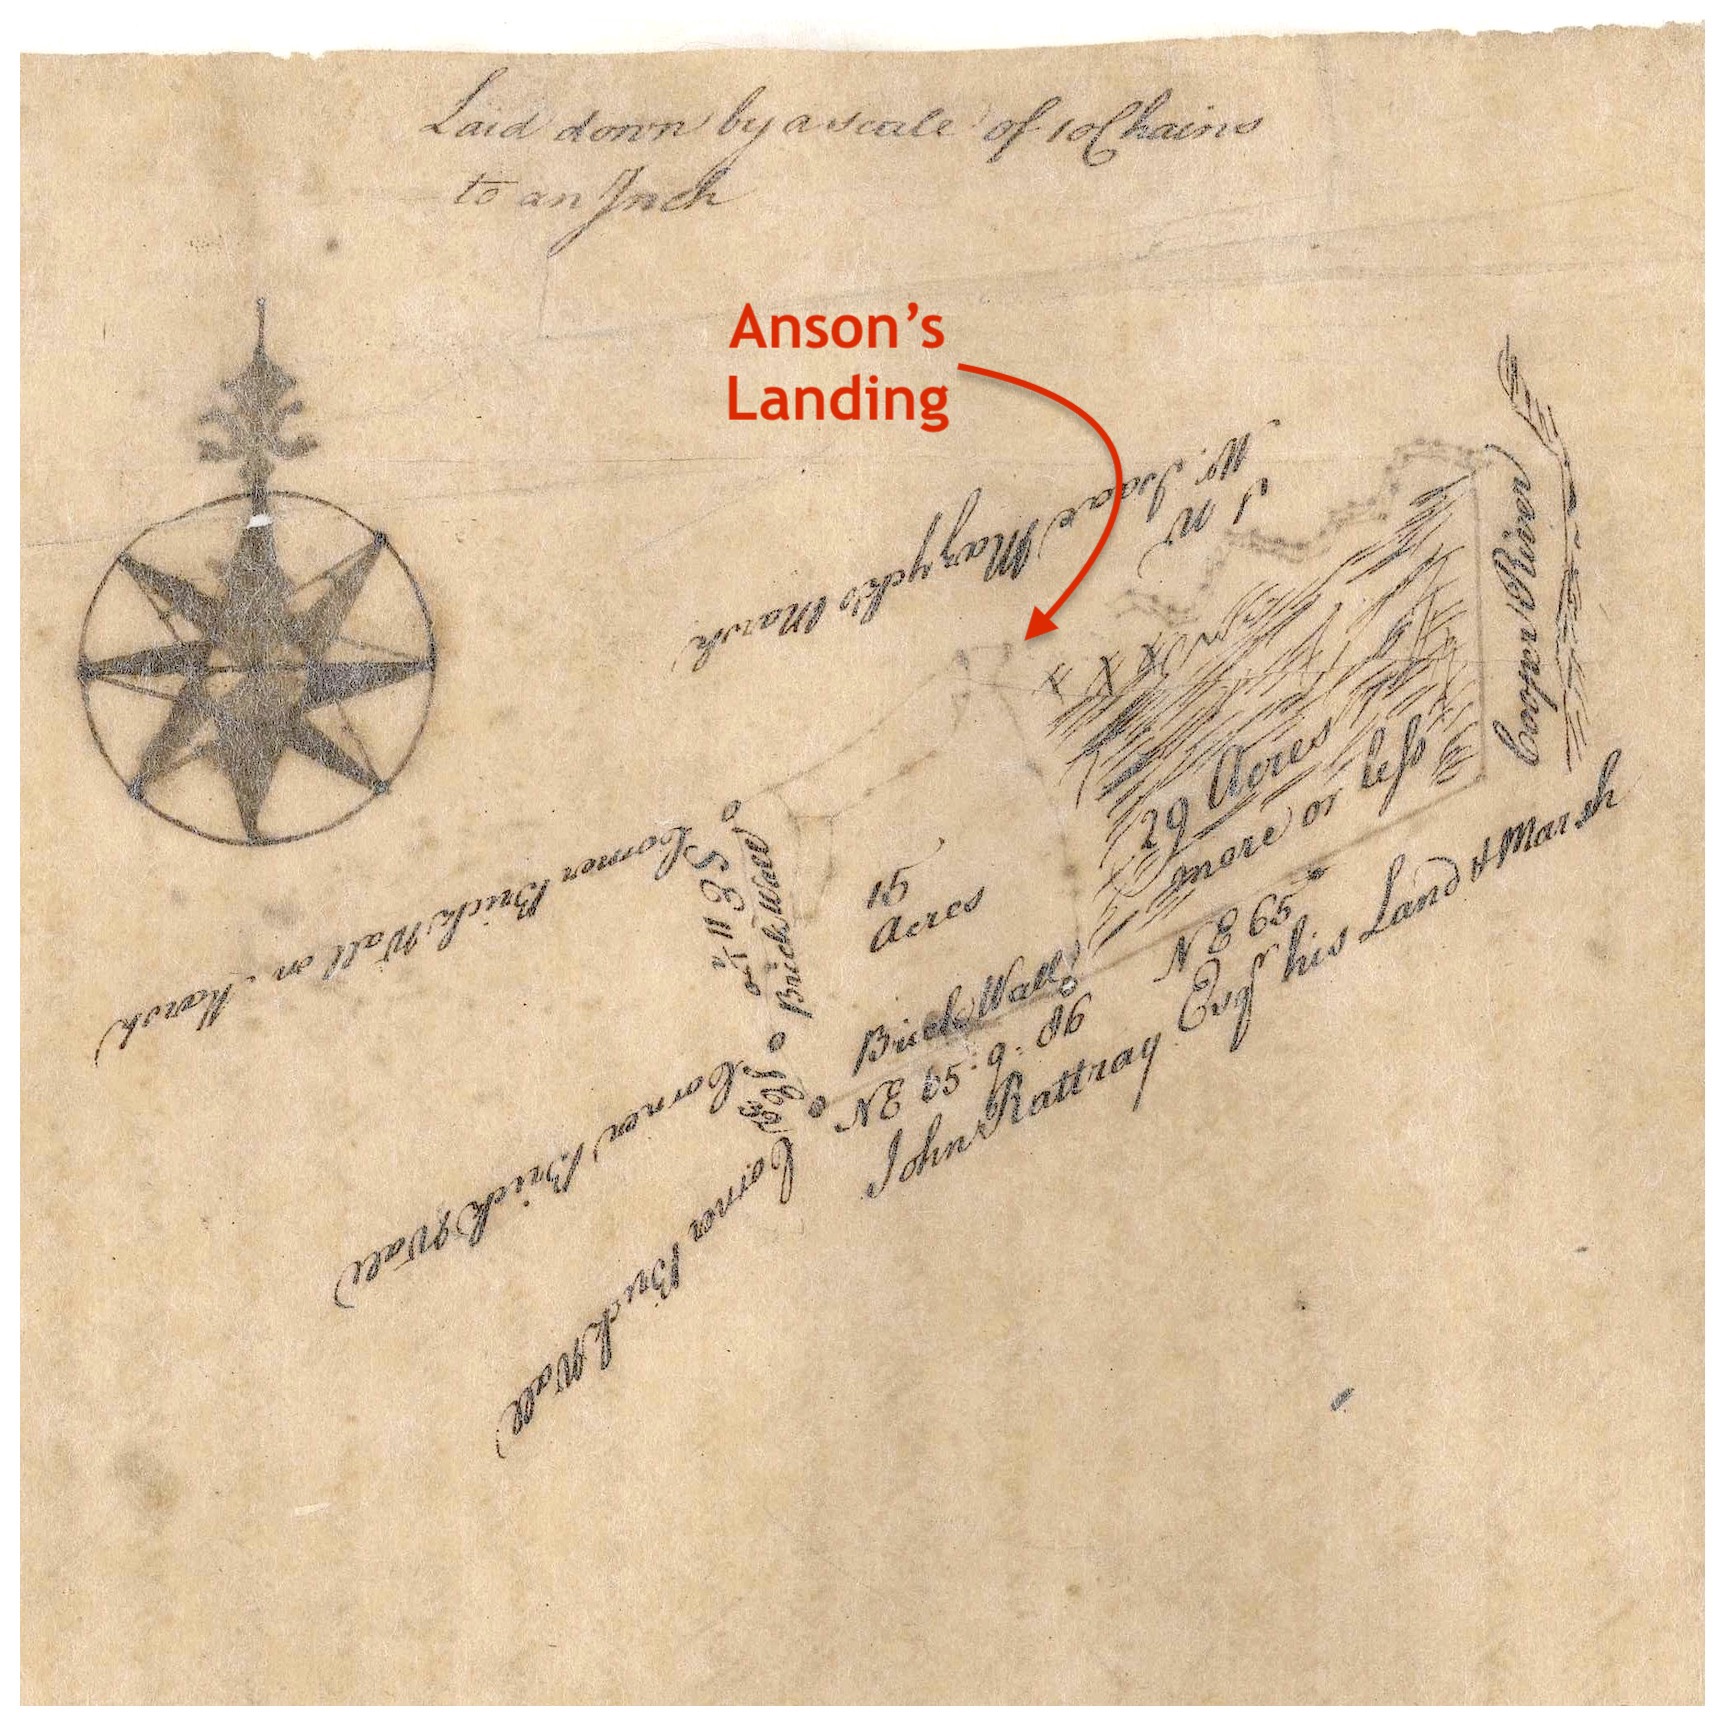 Laid down by a scale of 10 Chains
to an Inch
Anson's
Landing
Mr. Isaac Mazyck's Marsh
Cooper River
29 Acres
more or less
Corner Brick Wall on Marsh
Brick Wall
15
Acres
Brick Wall
NE 65
NE 65 · 9 · 06
John Rattray Esqr his Land & Marsh
Corner Brick Wall
Corner Brick Wall